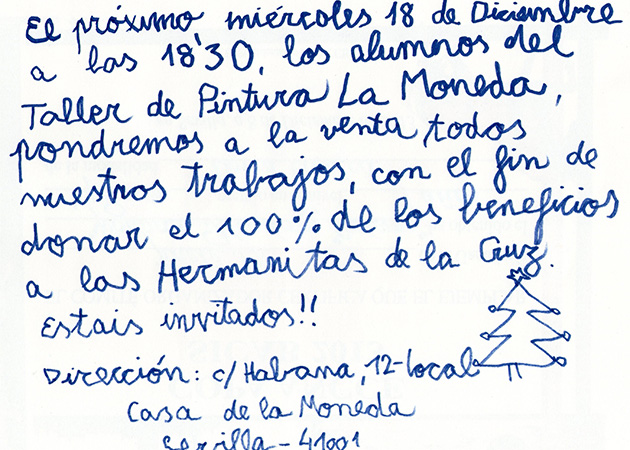 El próximo miércoles 18 de Diciembre
a las 18'30, los alumnos del
Taller de Pintura La Moneda,
pondremos a la venta todos
nuestros trabajos, con el fin de
donar el 100% de los beneficios
a las Hermanitas de la Cruz.
Estais invitados!!
Dirección: c/ Habana, 12-local
Casa de la Moneda
Sevilla - 41001